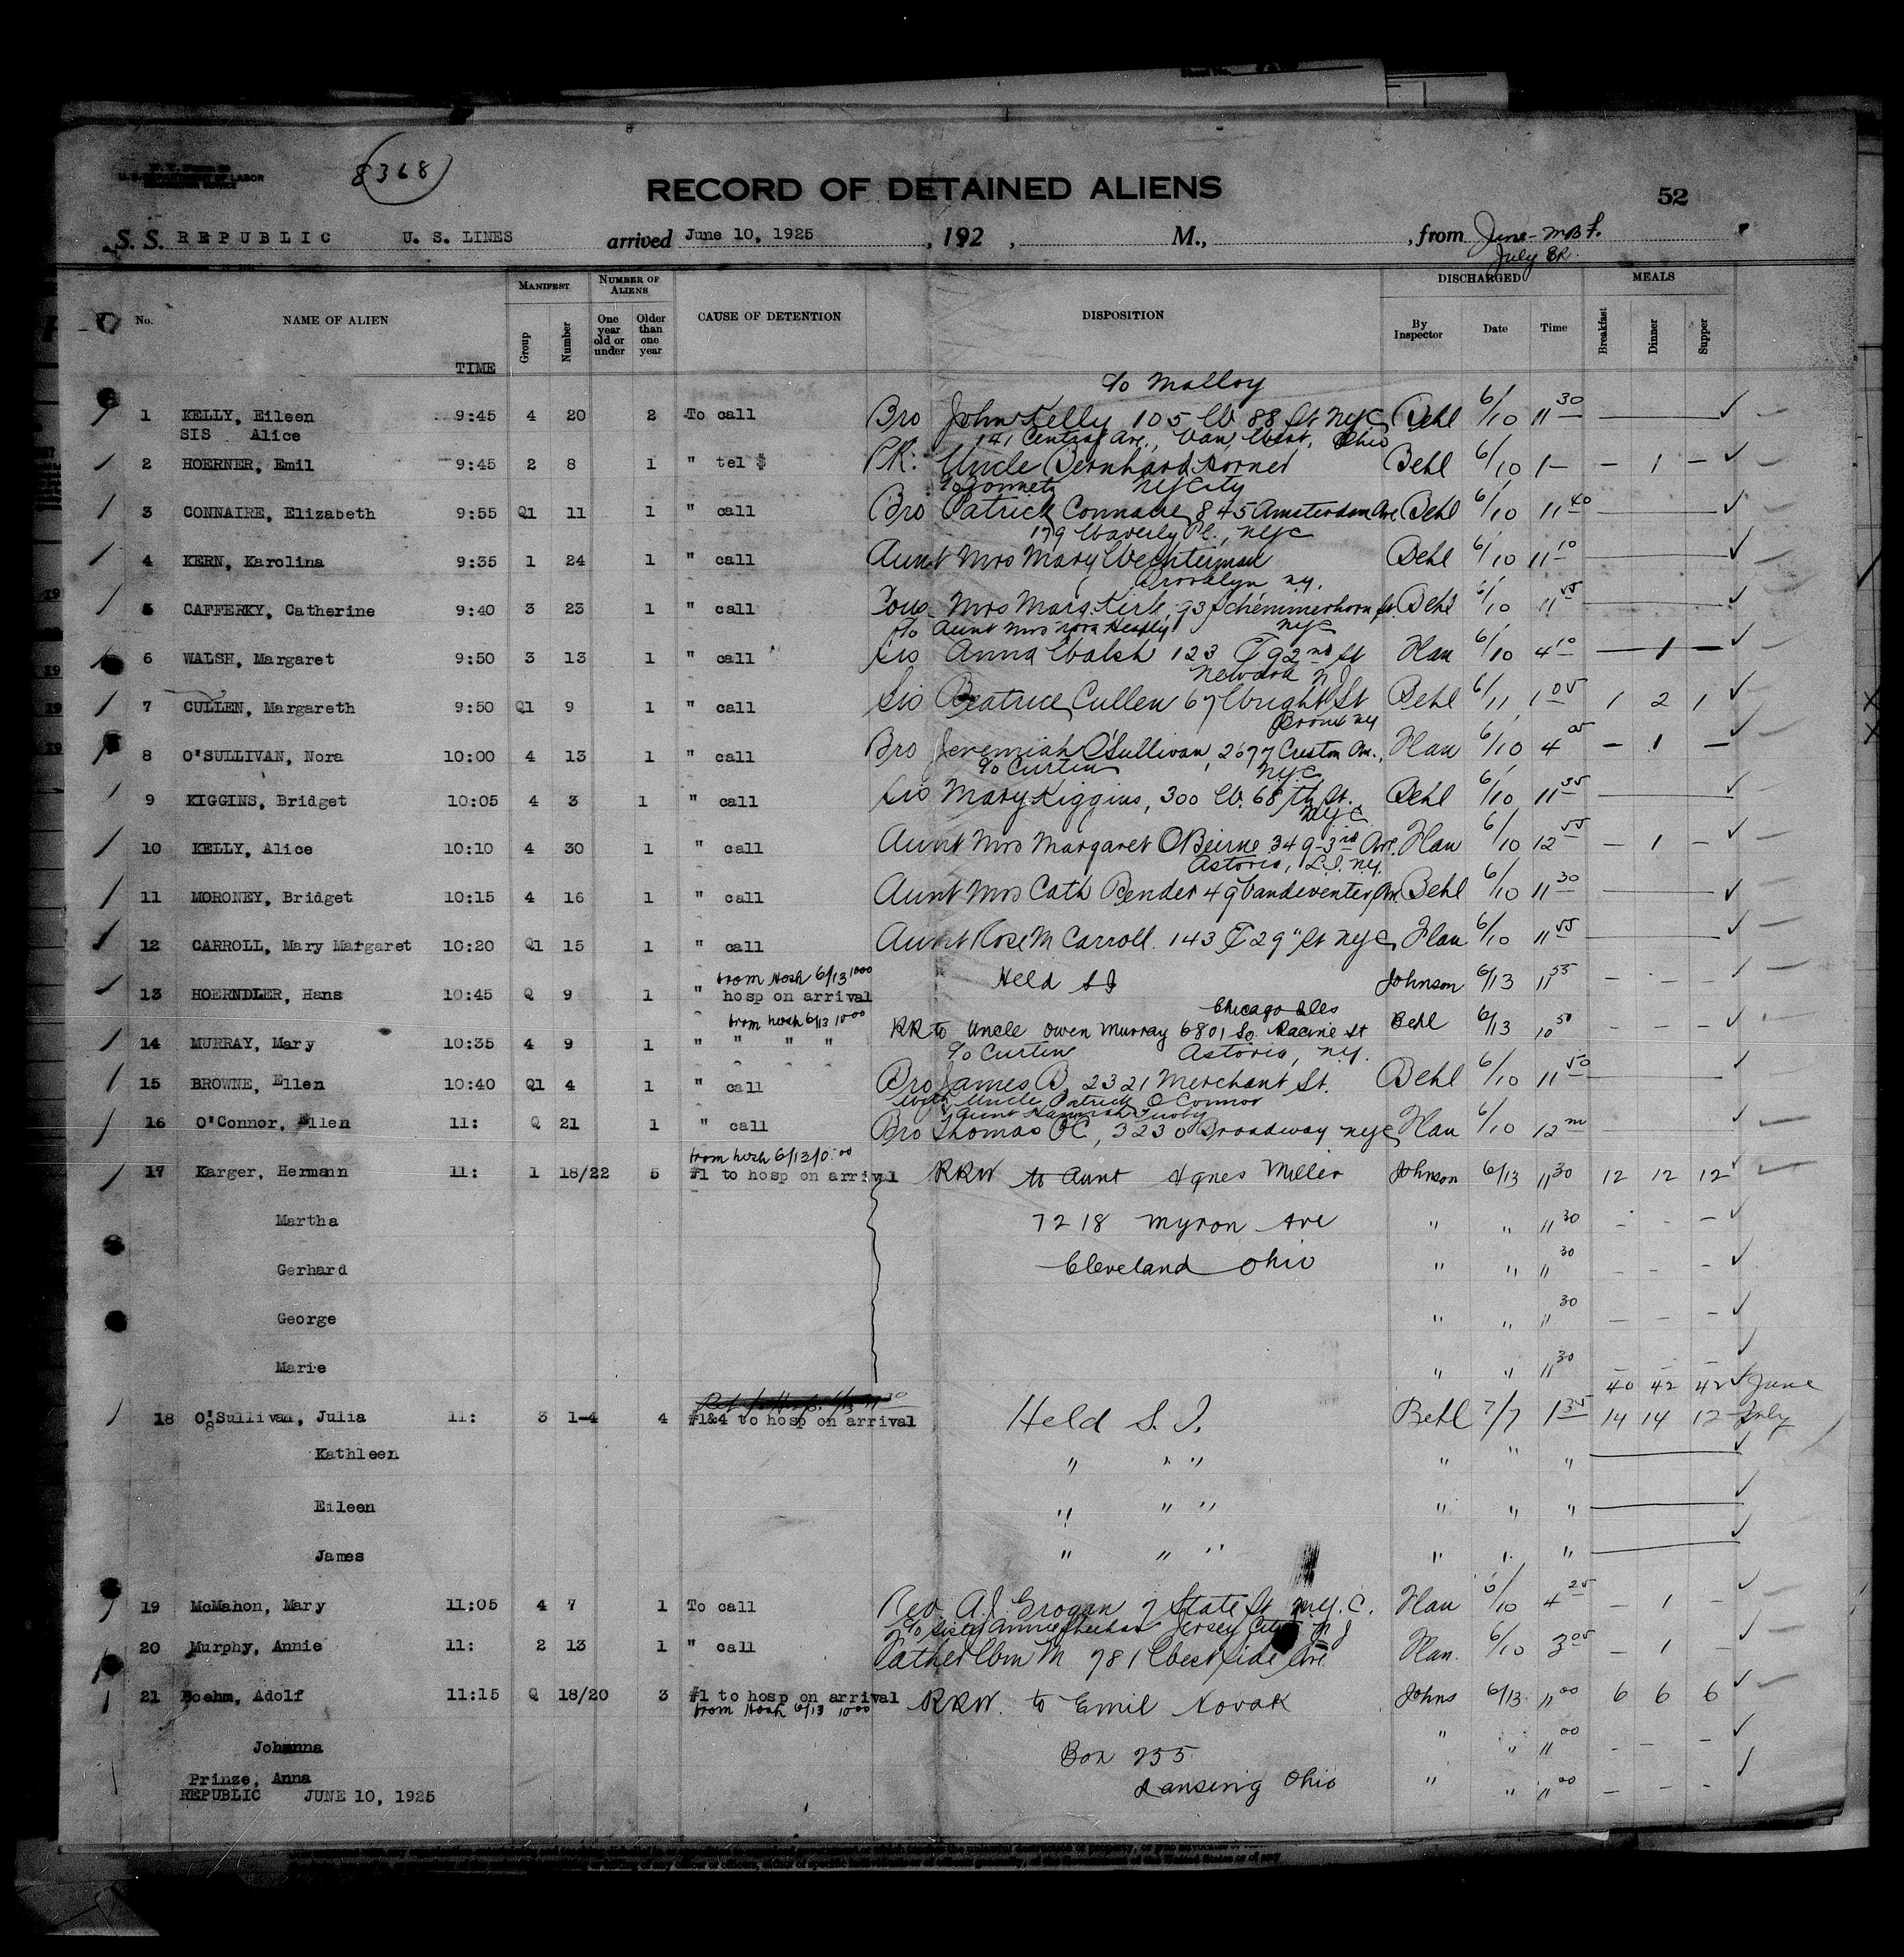 8368
RECORD OF DETAINED ALIENS
52
U. S. DEPARTMENT OF LABOR
S. S. REPUBLIC U. S. LINES arrived June 10, 1925, 192 , M., , from June - MBF.
July ER.
No. NAME OF ALIEN TIME MANIFEST Group Number NUMBER OF ALIENS One year old or under Older than one year CAUSE OF DETENTION DISPOSITION DISCHARGED By Inspector Date Time MEALS Breakfast Dinner Supper
c/o Malloy
1 KELLY, Eileen 9:45 4 20 2 To call Bro John Kelly 105 W 88 St NYC Behl 6/10 11 30
SIS Alice
141 Central Ave., Van West, Ohio
2 HOERNER, Emil 9:45 2 8 1 " tel $ Uncle Bernhard Horner Behl 6/10 1 – – 1 –
NY City
3 CONNAIRE, Elizabeth 9:55 Q1 11 1 " call Bro Patrick Connaire 845 Amsterdam Ave Behl 6/10 11 40
179 Waverly Pl., NYC
4 KERN, Karolina 9:35 1 24 1 " call Aunt Mrs Mary Wechterman Behl 6/10 11 10
Brooklyn NY.
5 CAFFERKY, Catherine 9:40 3 23 1 " call Cous. Mrs Marg. Kirk, 93 Schemmerhorn St. Behl 6/10 11 55
c/o Aunt Mrs Nora Heafey NYC
6 WALSH, Margaret 9:50 3 13 1 " call Sis Anna Walsh 123 E 92nd St Hau 6/10 4 10 – 1 –
Newark NJ
7 CULLEN, Margareth 9:50 Q1 9 1 " call Sis Beatrice Cullen 67 Wright St Behl 6/11 1 05 1 2 1
Bronx NY
8 O'SULLIVAN, Nora 10:00 4 13 1 " call Bro Jeremiah O'Sullivan, 2677 Creston Av., Hau 6/10 4 05 – 1 –
c/o Curtin N.Y.C.
9 KIGGINS, Bridget 10:05 4 3 1 " call Sis Mary Kiggins, 300 W. 68th St. Behl 6/10 11 35
NYC
10 KELLY, Alice 10:10 4 30 1 " call Aunt Mrs Margaret O'Beirne 349-3rd Ave. Hau 6/10 12 55 – 1 –
Astoria, L.I. N.Y.
11 MORONEY, Bridget 10:15 4 16 1 " call Aunt Mrs Cath Bender 49 Vandeventer Av. Behl 6/10 11 30
12 CARROLL, Mary Margaret 10:20 Q1 15 1 " call Aunt Rose M Carroll. 143 E 29" St NYC Hau 6/10 11 55
from Hosp 6/13 10 00
13 HOERNDLER, Hans 10:45 Q 9 1 " hosp on arrival Held SI Johnson 6/13 11 55 – – –
from hosp 6/13 10 00 Chicago Ills
14 MURRAY, Mary 10:35 4 9 1 " " " " RR to Uncle Owen Murray 6801 So. Racine St Behl 6/13 10 50 – – –
c/o Curtin Astoria, N.Y.
15 BROWNE, Ellen 10:40 Q1 4 1 " call Bro James B, 2321 Merchant St. Behl 6/10 11 50
with Uncle Patrick O'Connor
16 O'Connor, Ellen 11: Q 21 1 " call Bro Thomas O'C, 3230 Broadway NYC Hau 6/10 12 m
from hosp 6/13 10:00
17 Karger, Hermann 11: 1 18/22 5 #1 to hosp on arrival RRW to Aunt Agnes Miller Johnson 6/13 11 30 12 12 12
Martha 7218 Myron Ave " " 11 30 – – –
Gerhard Cleveland Ohio " " 11 30 – – –
George " " " 30 – – –
Marie " " 11 30 – – –
40 42 42 June
18 O'Sullivan, Julia 11: 3 1-4 4 #1&4 to hosp on arrival Held S. I. Behl 7/7 1 35 14 14 12 July
Kathleen " " " " " "
Eileen " " " " " "
James " " " " " "
19 McMahon, Mary 11:05 4 7 1 To call Rev. A.J. Grogan 7 State St N.Y.C. Hau 6/10 4 25 – 1 –
c/o Sister Annie Sheehan Jersey City N J
20 Murphy, Annie 11: 2 13 1 " call Father Wm M 781 West Side Ave Hau. 6/10 3 05 – 1 –
21 Boehm, Adolf 11:15 Q 18/20 3 #1 to hosp on arrival RRW. to Emil Novak Johns 6/13 11 00 6 6 6
from Hosp 6/13 10 00
Johanna Box 255 " " 11 00 – – –
Prinze, Anna Lansing Ohio " " 11 00 – – –
REPUBLIC JUNE 10, 1925